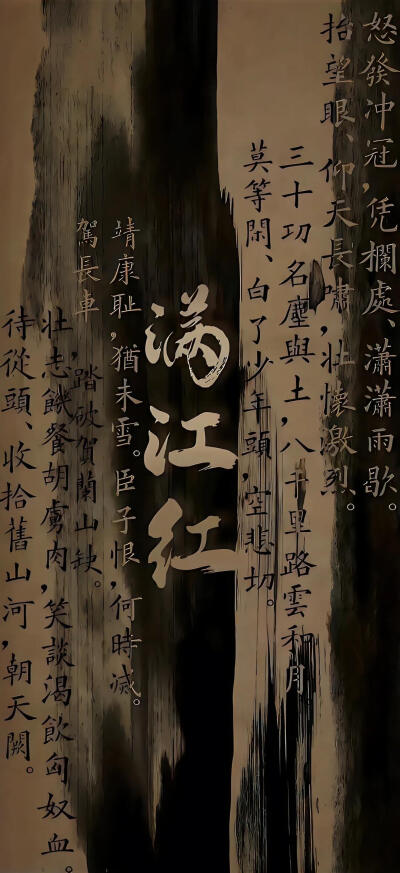 怒發沖冠，凭欄處、瀟瀟雨歇。
抬望眼、仰天長嘯，壯懷激烈。
三十功名塵與土，八千里路雲和月
莫等閑、白了少年頭，空悲切。
满江红
靖康耻，猶未雪。臣子恨，何時滅。
駕長車，踏破賀蘭山缺。
壯志饑餐胡虜肉，笑談渴飲匈奴血。
待從頭、收拾舊山河，朝天闕。